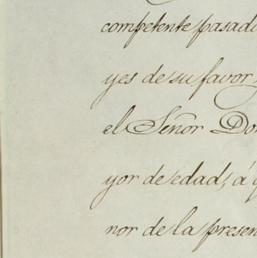 competente pasad
yes de su favor
el Señor Do
yor de edad, á q
nor de la presen